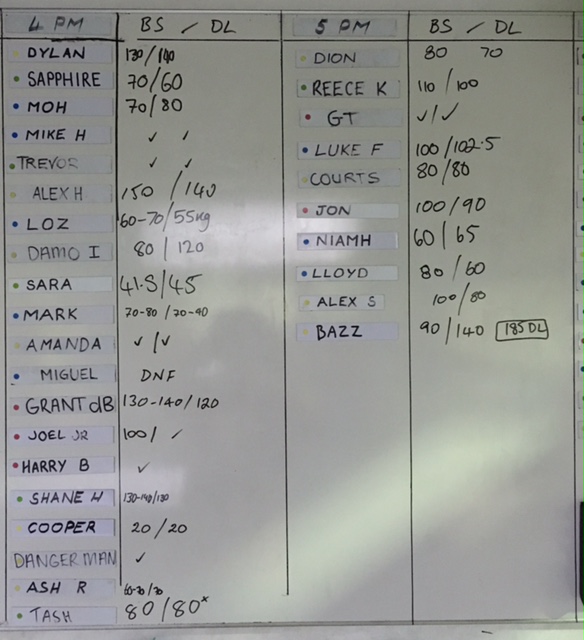 4 PM BS / DL
DYLAN 130/140
SAPPHIRE 70/60
MOH 70/80
MIKE H ✓ ✓
TREVOR ✓ ✓
ALEX H 150 / 140
LOZ 60-70/55kg
DAMO I 80 / 120
SARA 41.5/45
MARK 70-80 / 70-90
AMANDA ✓/✓
MIGUEL DNF
GRANT dB 130-140/120
JOEL JR 100/ ✓
HARRY B ✓
SHANE H 130-140/130
COOPER 20/20
DANGER MAN ✓
ASH R
TASH 80/80*
5 PM BS / DL
DION 80 70
REECE K 110 / 100
GT ✓/✓
LUKE F 100/102.5
COURTS 80/80
JON 100/90
NIAMH 60/65
LLOYD 80/60
ALEX S 100/80
BAZZ 90/140 185 DL